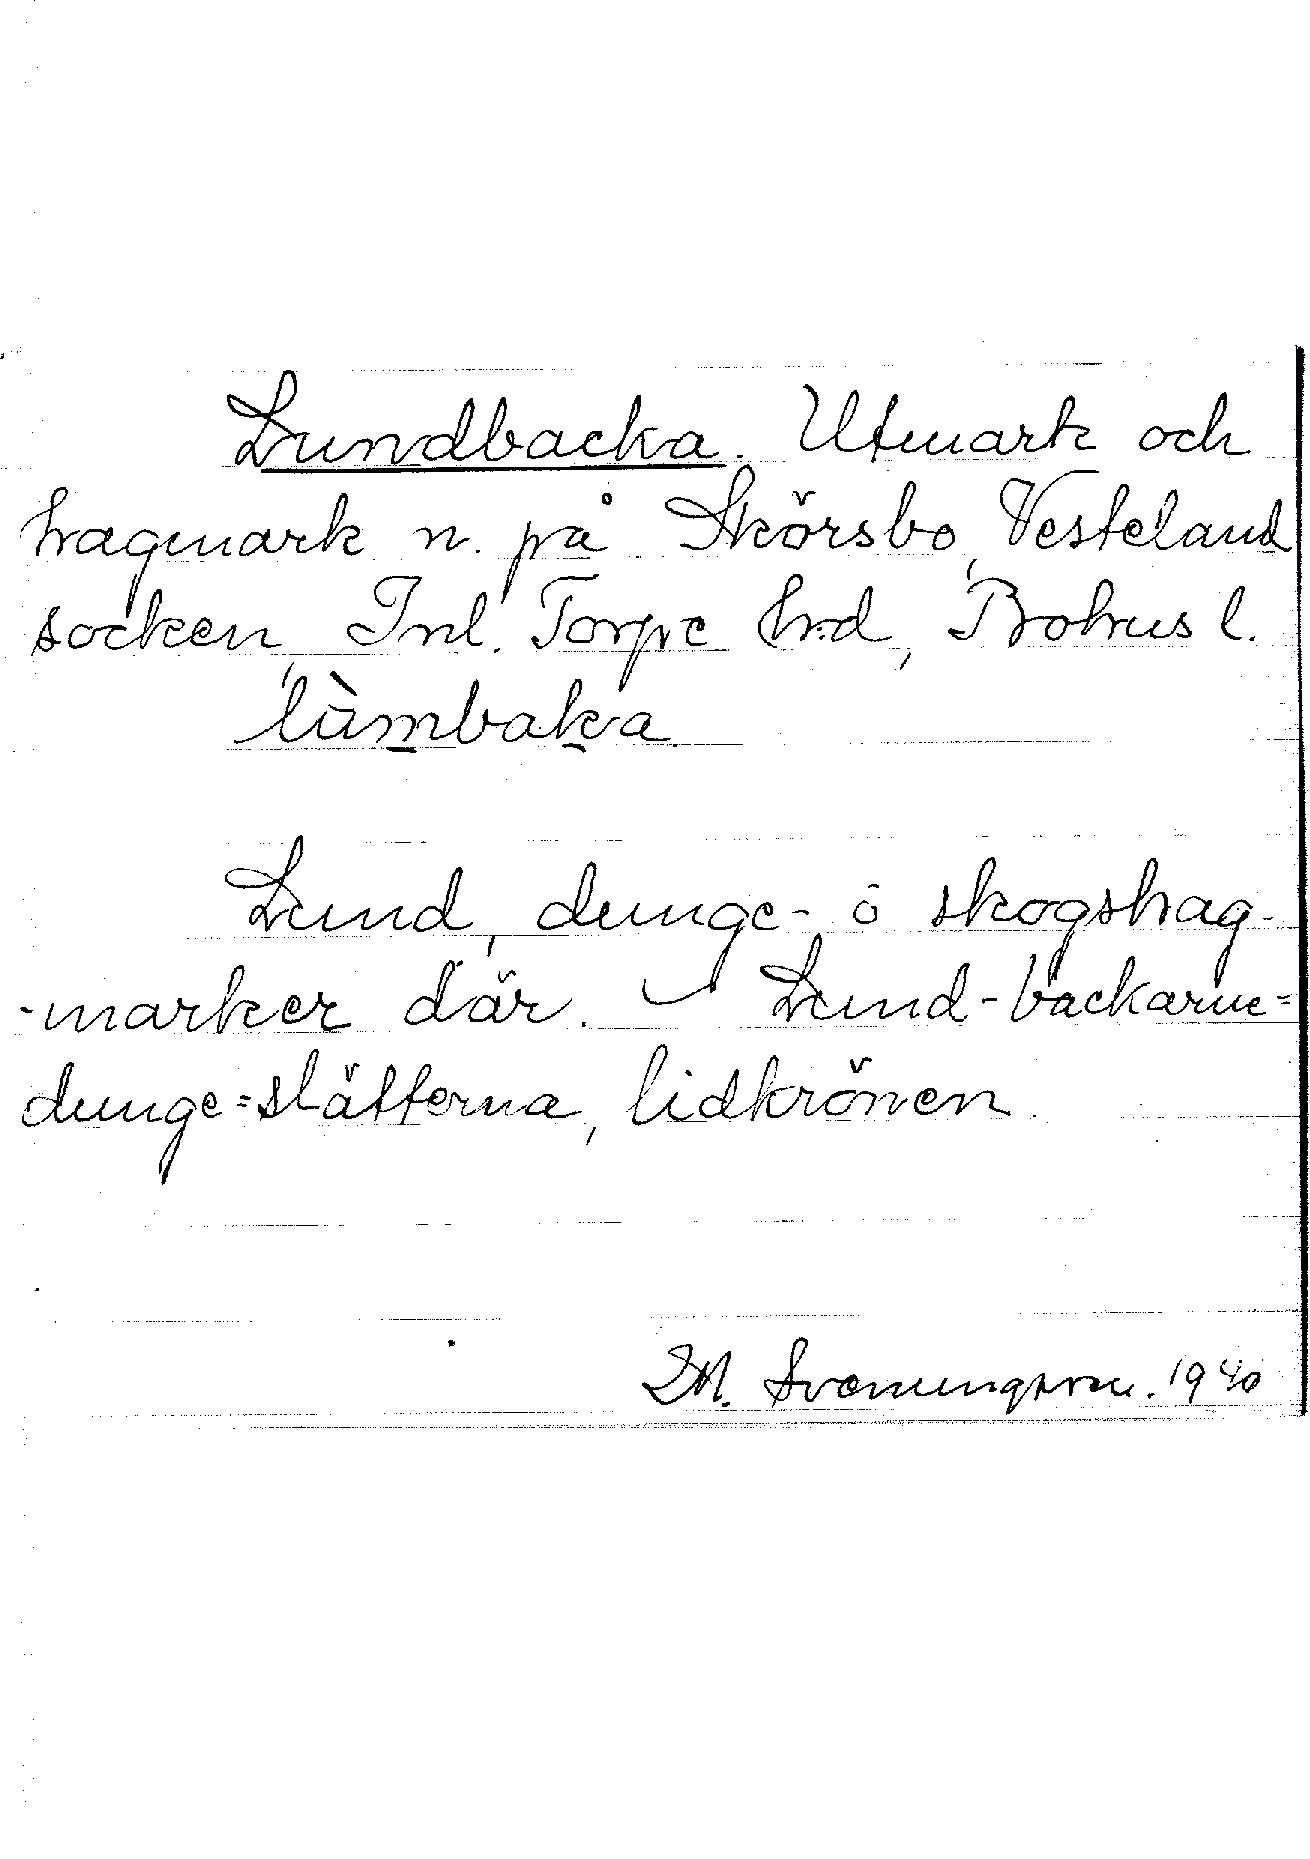 Lundbacka. Utmark och
hagmark n. på Skörsbo, Vesteland
socken, Inl. Torpe h:d, Bohus l.
lùmbaka.
Lund, dunge- o skogshag-
-marker där. Lund-backarne=
dunge=slätterna, lidkrönen.
M. Svenungsson. 1940